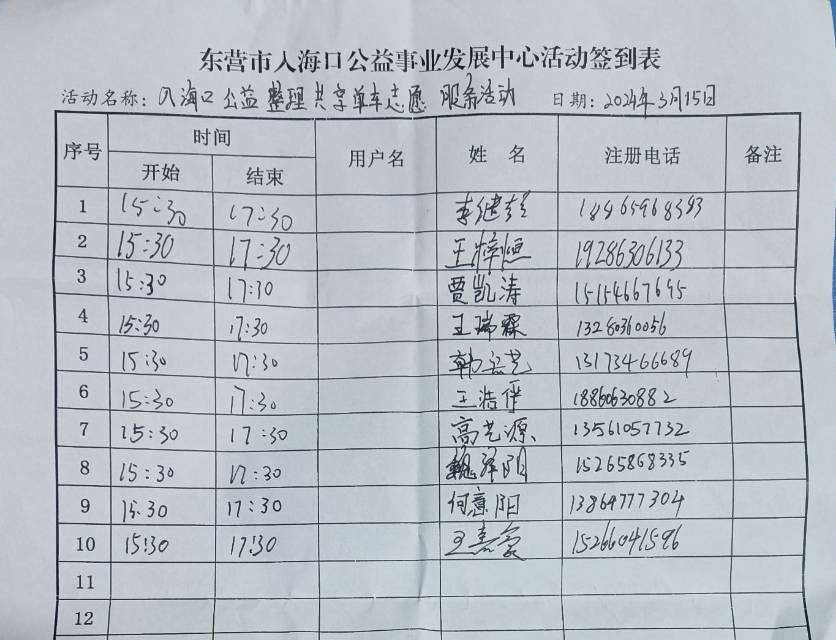 东营市入海口公益事业发展中心活动签到表
活动名称：入海口公益整理共享单车志愿服务活动 日期：2024年3月15日
序号 时间 用户名 姓 名 注册电话 备注
开始 结束
1 15:30 17:30 李继
2 15:30 17:30 王梓恒 19286306133
3 15:30 17:30 贾凯涛 15154667695
4 15:30 17:30 王瑞霖 13280360056
5 15:30 17:30 韩 艺 13173466689
6 15:30 17:30 王浩 18860630882
7 15:30 17:30 高艺源 13561057732
8 15:30 17:30 魏泽阳 15265868335
9 15:30 17:30 何意阳 13864777304
10 15:30 17:30 王嘉豪 15266041596
11
12